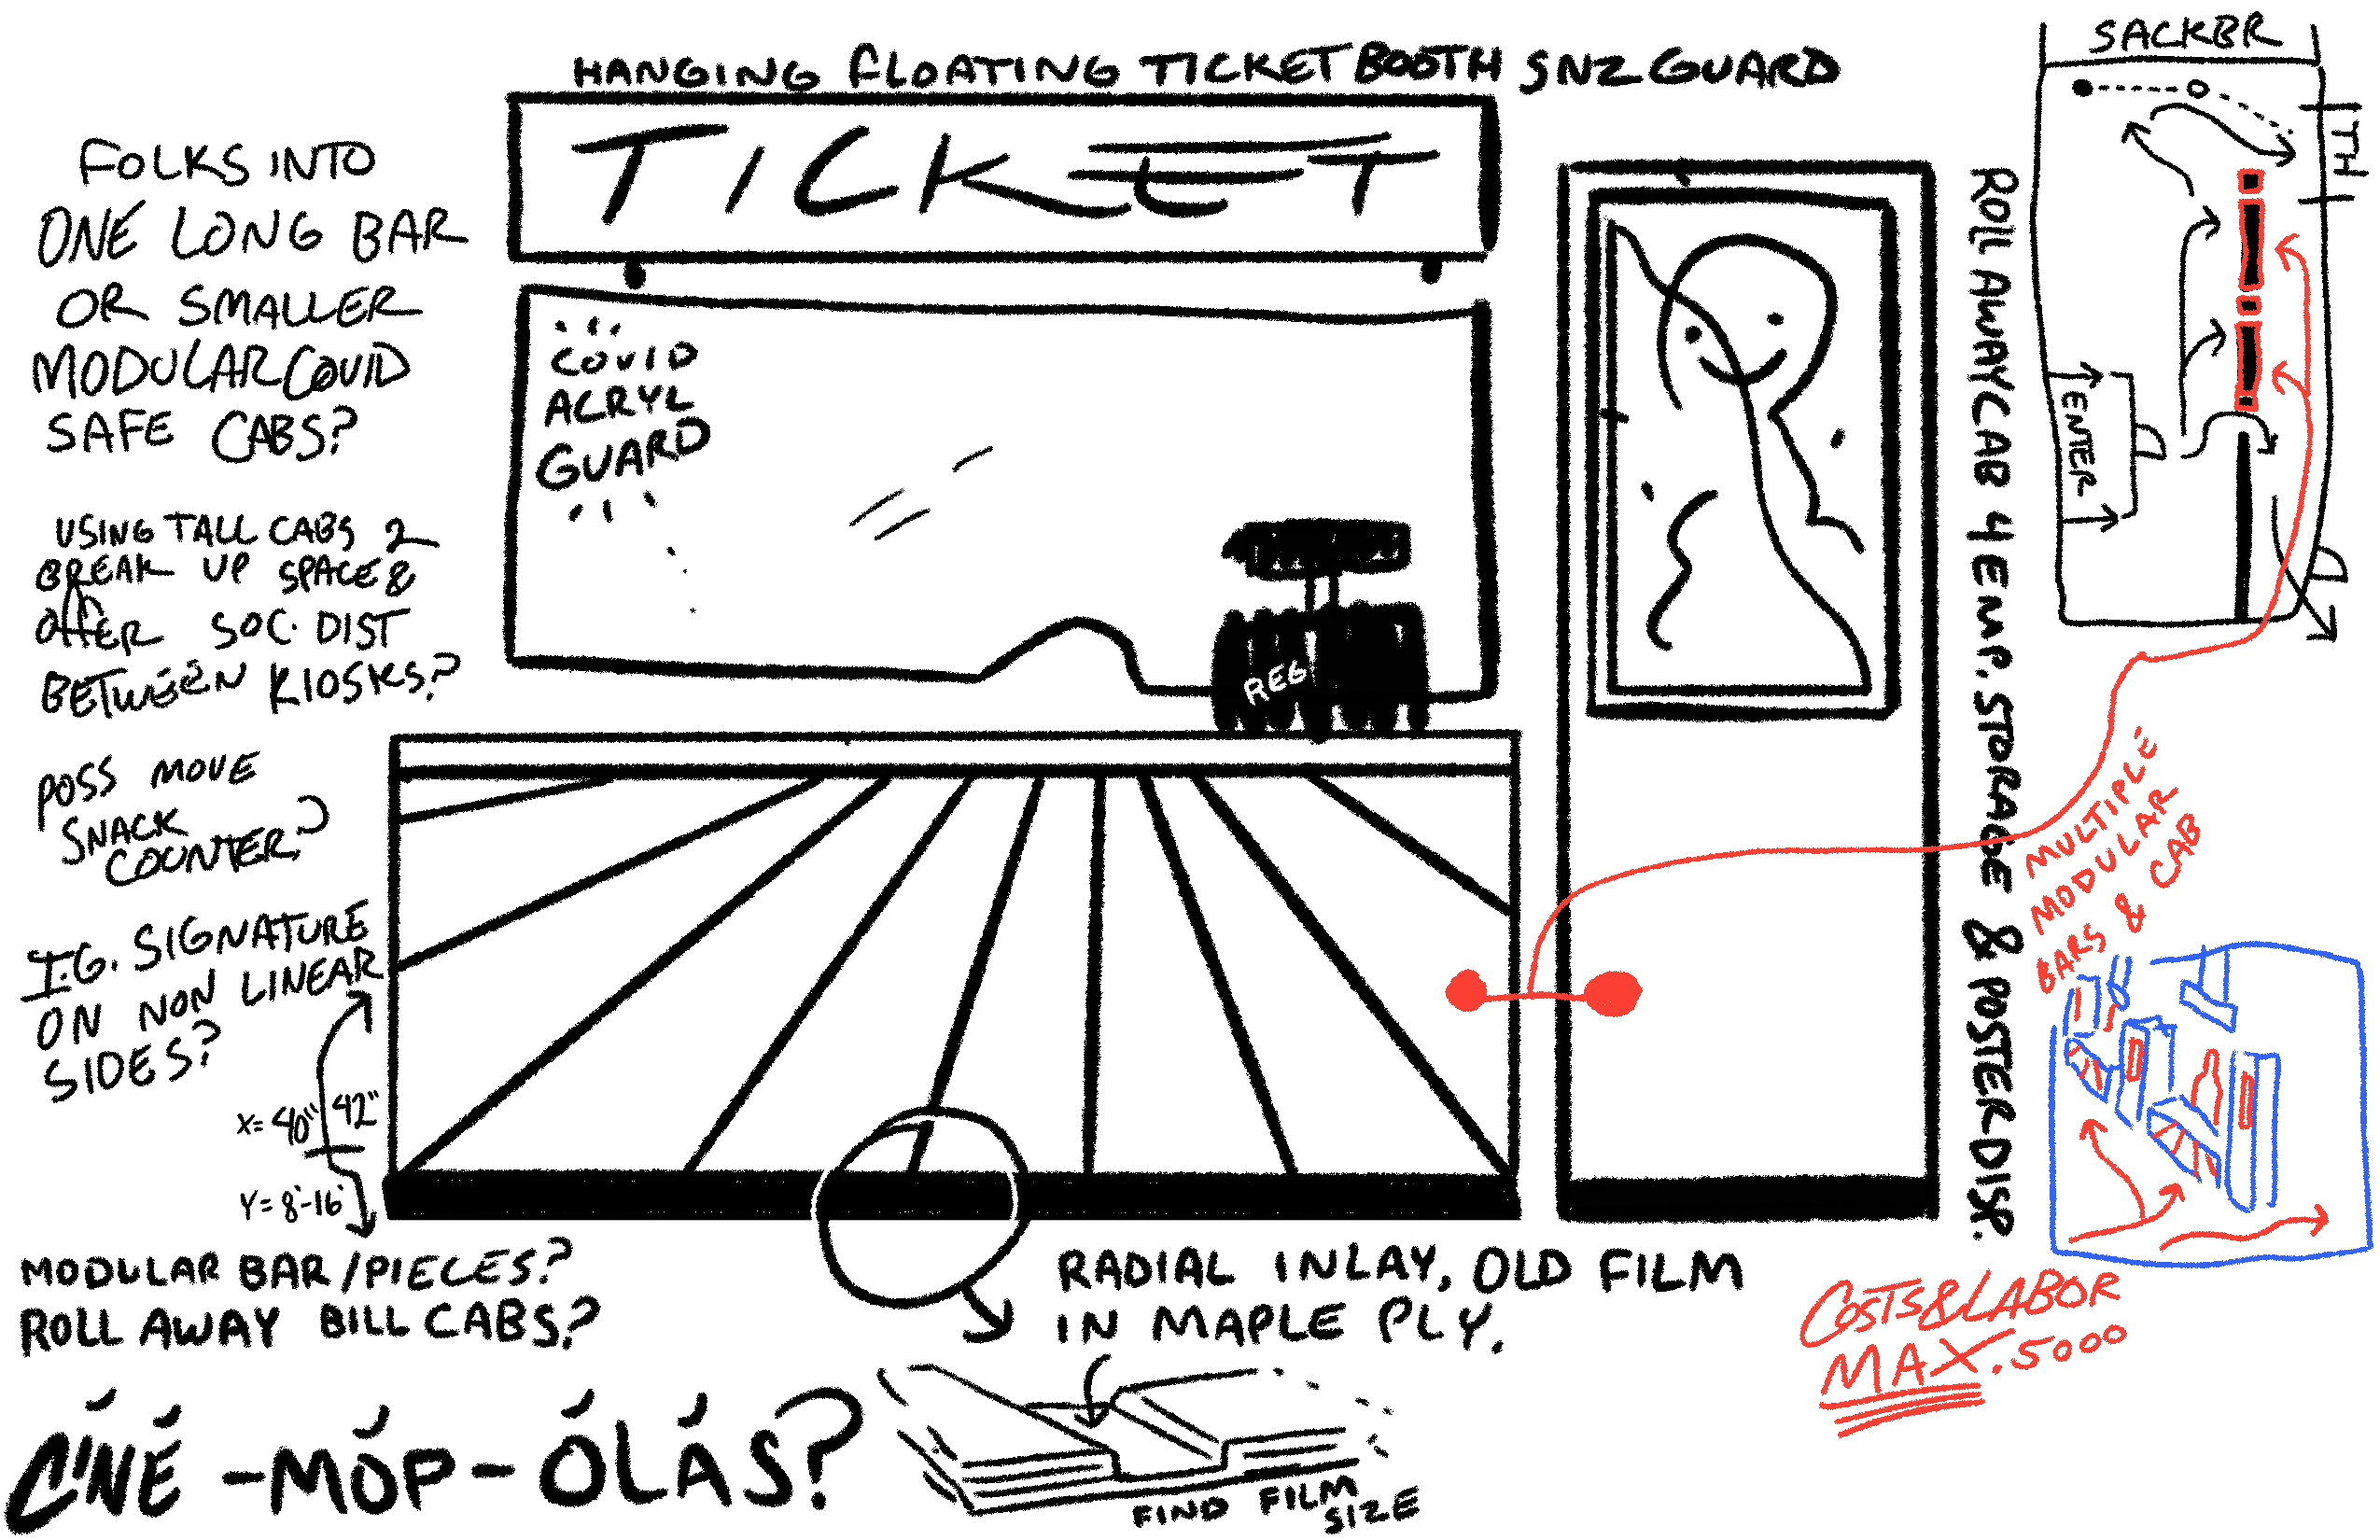 HANGING FLOATING TICKET BOOTH SNZ GUARD
TICKET
FOLKS INTO
ONE LONG BAR
OR SMALLER
MODULAR COVID
SAFE CABS?
USING TALL CABS 2
BREAK UP SPACE &
OFFER SOC. DIST
BETWEEN KIOSKS?
POSS MOVE
SNACK
COUNTER?
I.G. SIGNATURE
ON NON LINEAR
SIDES?
X= 40" 42"
Y= 8'-16'
MODULAR BAR/PIECES?
ROLL AWAY BILL CABS?
CÍNÉ-MÓP-ÓLÁS?
COVID
ACRYL
GUARD
REG
RADIAL INLAY, OLD FILM
IN MAPLE PLY.
FIND FILM
SIZE
ROLL AWAY CAB 4 EMP. STORAGE & POSTER DISP.
SACKBR
TH
ENTER
MULTIPLE
MODULAR
BARS & CAB
COSTS & LABOR
MAX. 5000